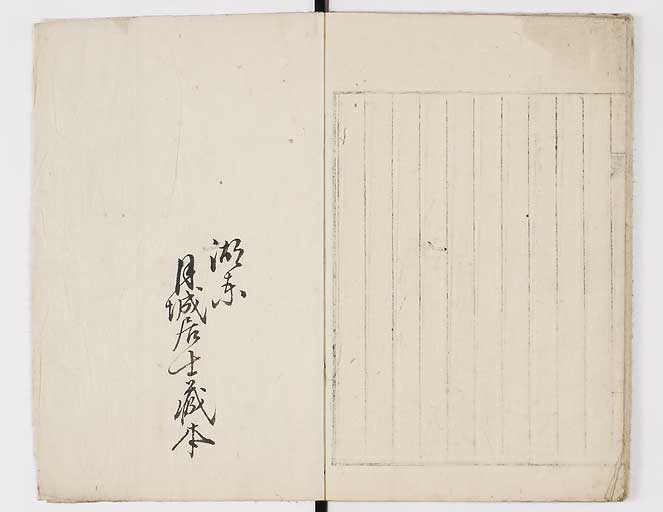 湖東
月城居士蔵本